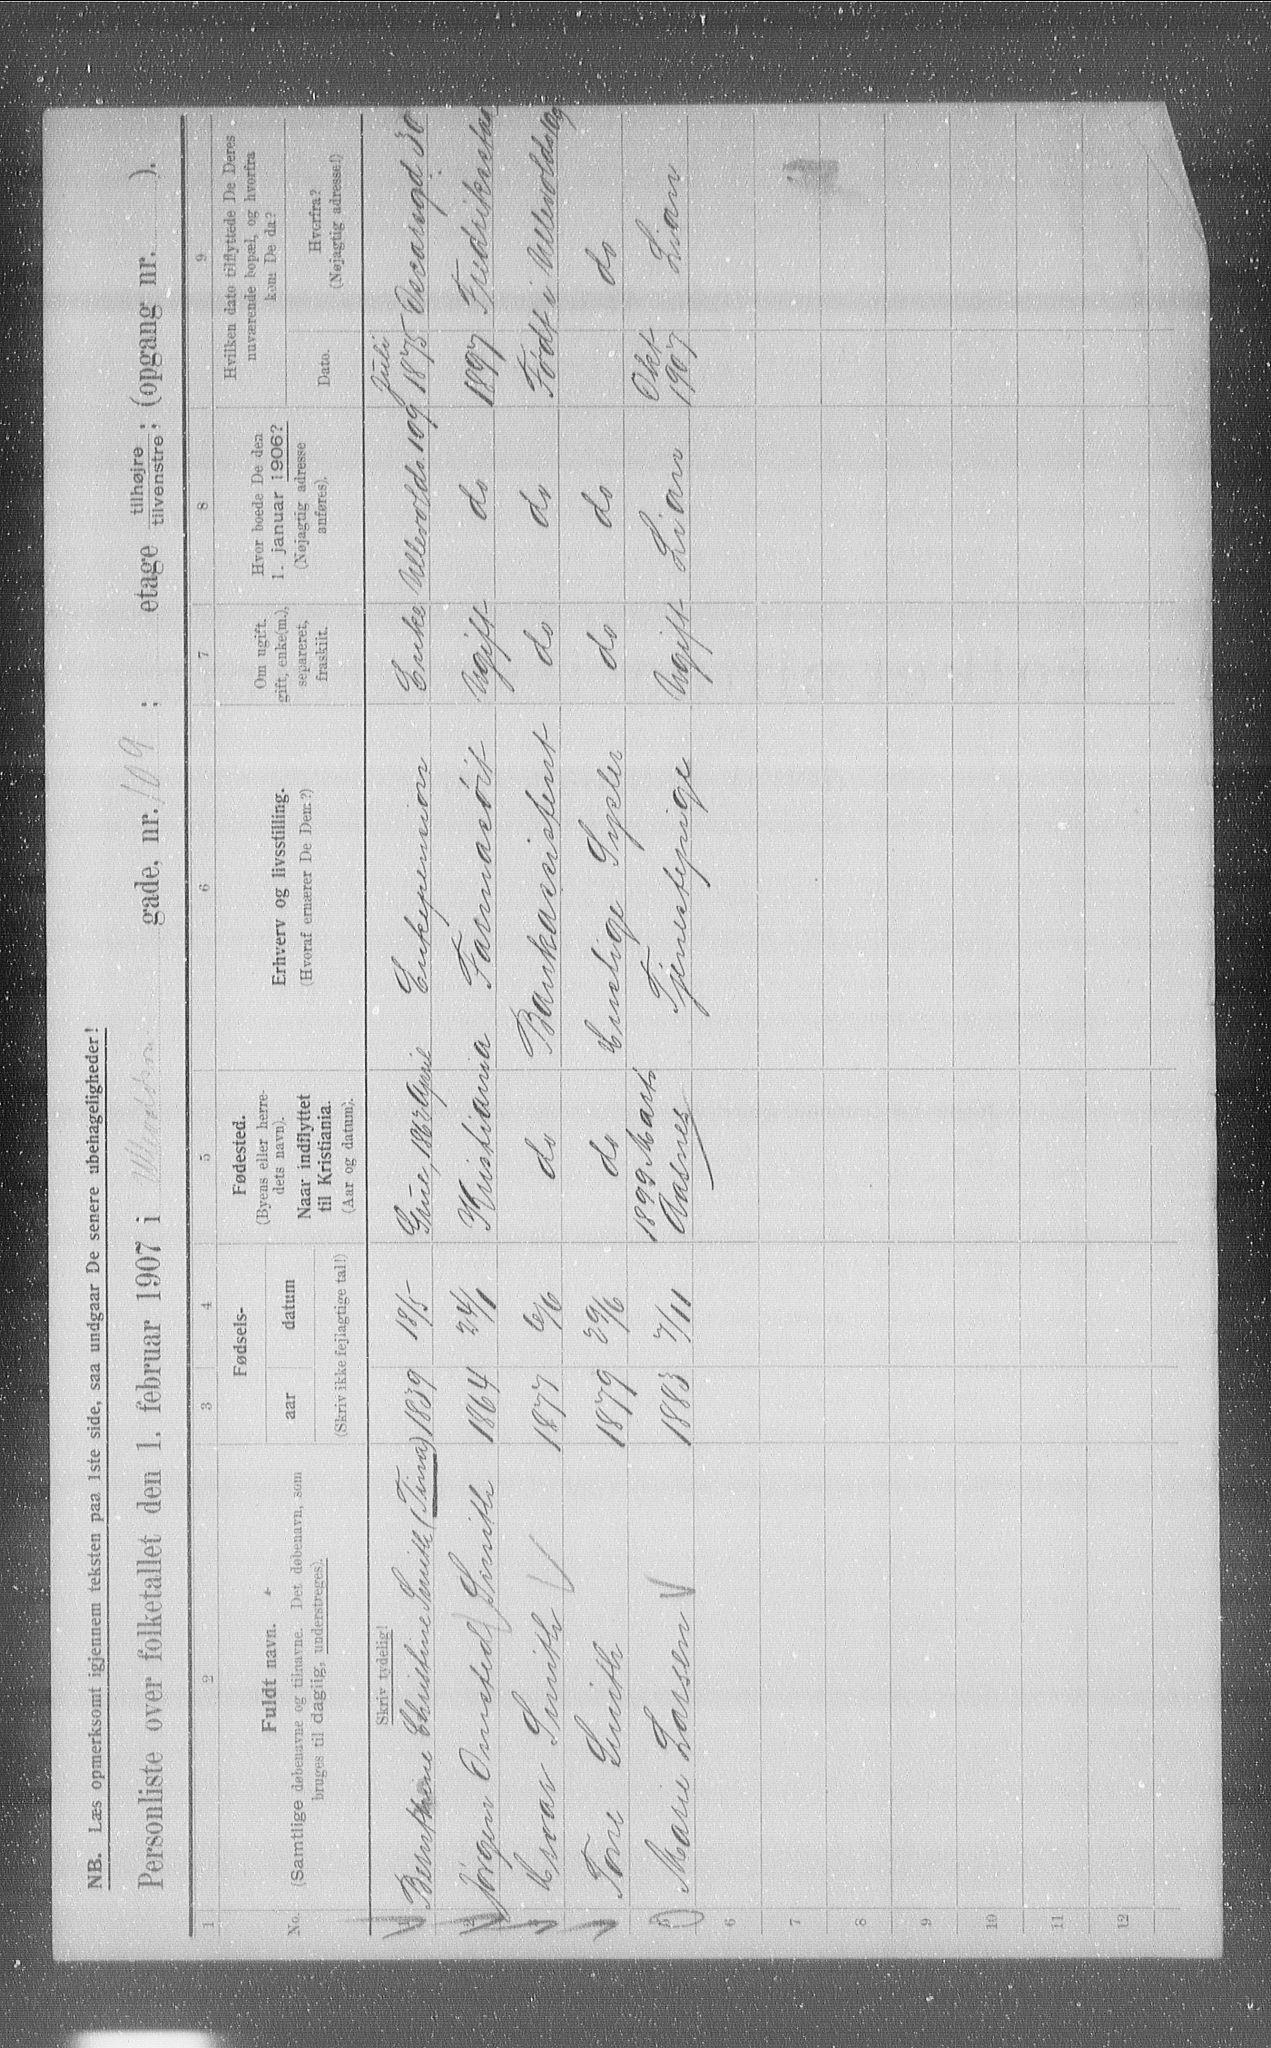 NB. Læs opmerksomt igjennem teksten paa 1ste side, saa undgaar De senere ubehageligheder!
Personliste over folketallet den 1. februar 1907 i gade, nr. 109 ; etage tilhøjre tilvenstre ; (opgang nr. ).
1 2 3 4 5 6 7 8 9
No. Fuldt navn. (Samtlige døbenavne og tilnavne. Det døbenavn, som bruges til daglig, understreges).
Fødsels-
aar datum
(Skriv ikke fejlagtige tal!)
Fødested. (Byens eller herredets navn). Naar indflyttet til Kristiania. (Aar og datum).
Erhverv og livsstilling. (Hvoraf ernærer De Dem?)
Om ugift, gift, enke(m.), separeret, fraskilt.
Hvor boede De den 1. januar 1906? (Nøjagtig adresse anføres).
Hvilken dato tilflyttede De Deres nuværende bopæl, og hvorfra kom De da?
Dato. Hvorfra? (Nøjagtig adresse!)
Skriv tydelig!
1 Bernthine Christine Smith (Tina) 1839 18/5 Grue, 1862 April Enkepension Enke Ullevoldsv 109 Juli 1875 Oscarsgd. 30
2 Jörgen Onsted Smith 1864 24/1 Kristiania Farmacöit Ugift do 1897 Fredrikstad
3 Smith 1877 6/6 do Bankassistent do do Født i
4 Tone Smith 1879 29/6 do do do do
5 Marie Larsen 1883 7/11 1899 Marts Aasnes Tjenestepige Ugift Lian Okt 1907 Lian
6
7
8
9
10
11
12